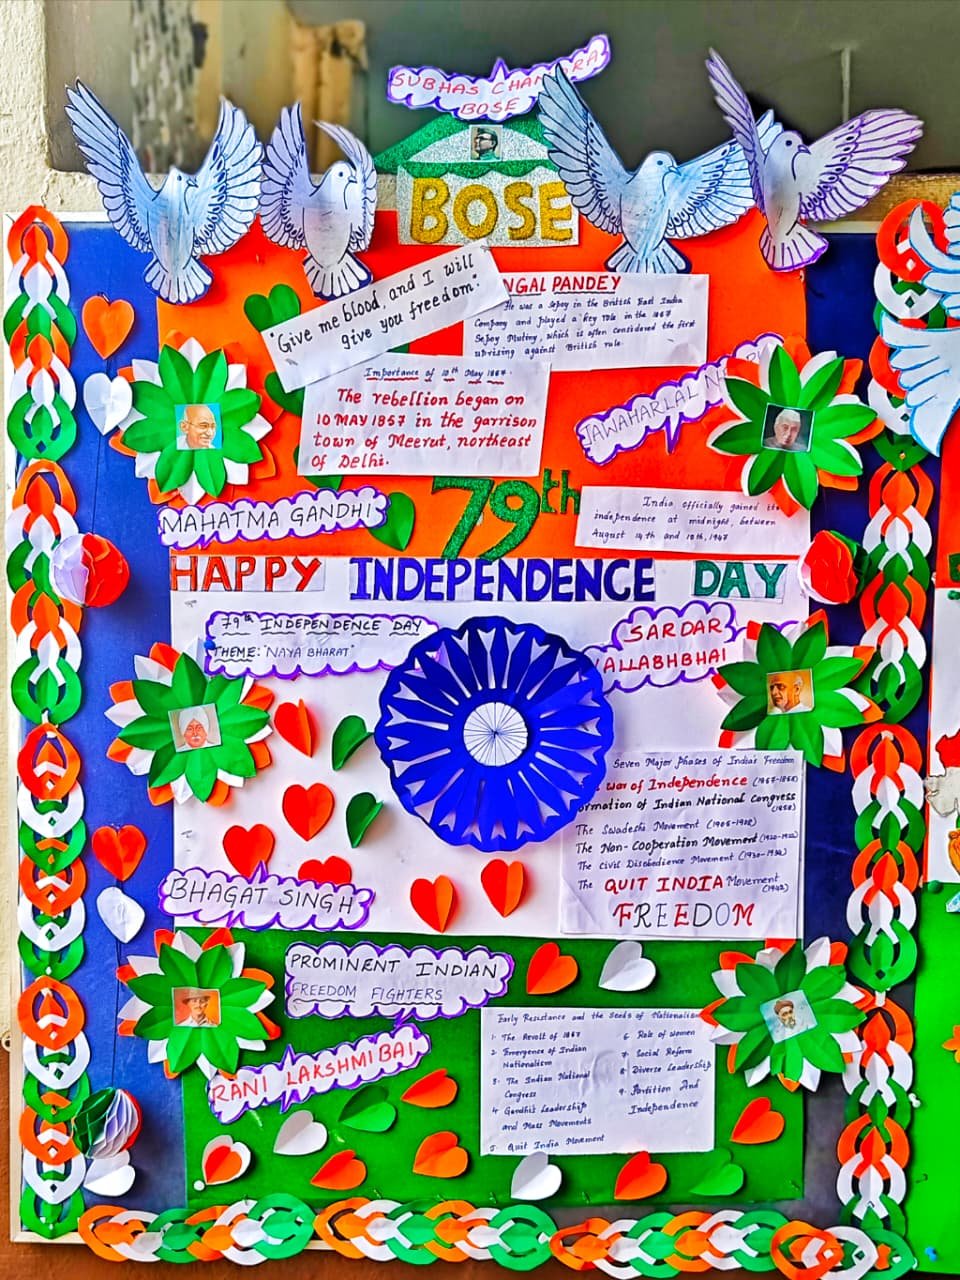 SUBHAS CHANDRA
BOSE
BOSE
"Give me blood, and I will
give you freedom."
NGAL PANDEY
He was a Sepoy in the British East India
Company and played a key role in the 1857
Sepoy Mutiny, which is often considered the first
uprising against British rule.
Importance of 10th May 1857.
The rebellion began on
10 MAY 1857 in the garrison
town of Meerut, northeast
of Delhi.
JAWAHARLAL
MAHATMA GANDHI
79th
India officially gained its
independence at midnight, between
August 14th and 15th, 1947
HAPPY INDEPENDENCE DAY
79th INDEPENDENCE DAY
THEME: "NAYA BHARAT"
SARDAR
VALLABHBHAI
Seven Major Phases of India's Freedom
war of Independence (1857-1858)
ormation of Indian National Congress
The Swadeshi Movement (1905-1908)
The Non-Cooperation Movement (1920-1922)
The Civil Disobedience Movement (1930-1934)
The QUIT INDIA Movement
(1942)
FREEDOM
BHAGAT SINGH
PROMINENT INDIAN
FREEDOM FIGHTERS
RANI LAKSHMIBAI
Early Resistance and the Seeds of Nationalism
1. The Revolt of 1857
2. Emergence of Indian
Nationalism
3. The Indian National
Congress
4. Gandhi's Leadership
and Mass Movements
5. Quit India Movement
6. Role of Women
7. Social Reform
8. Diverse Leadership
9. Partition And
Independence